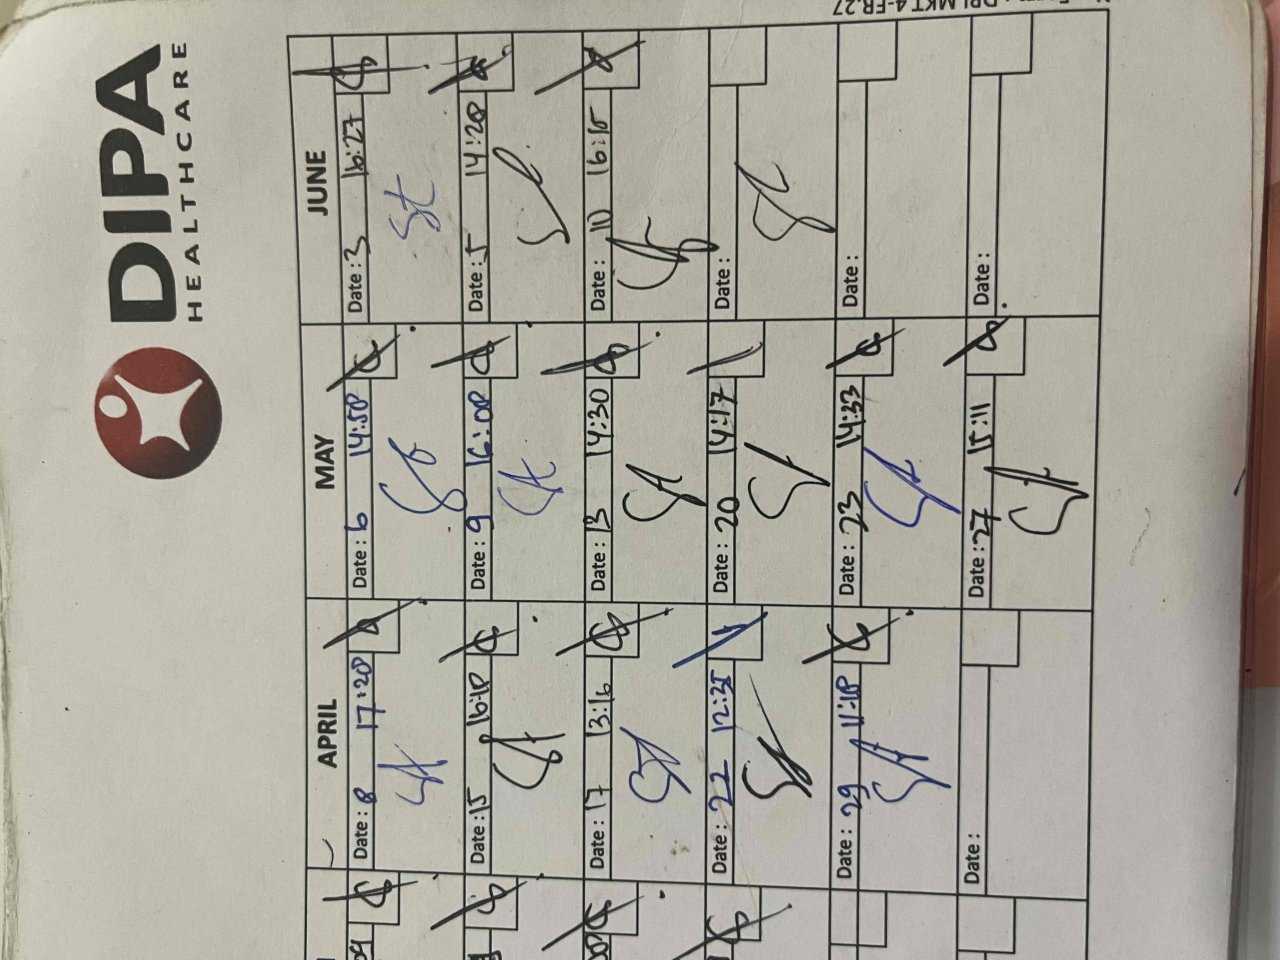 DIPA
HEALTHCARE
APRIL MAY JUNE
Date: 8 17:20
Date: 6 14:58
Date: 3 16:27
Date: 15 16:18
Date: 9 16:08
Date: 5 14:28
Date: 17 13:16
Date: 13 14:30
Date: 10 16:15
Date: 22 12:35
Date: 20 14:17
Date:
Date: 29 11:18
Date: 23 14:33
Date:
Date:
Date: 27 15:11
Date: